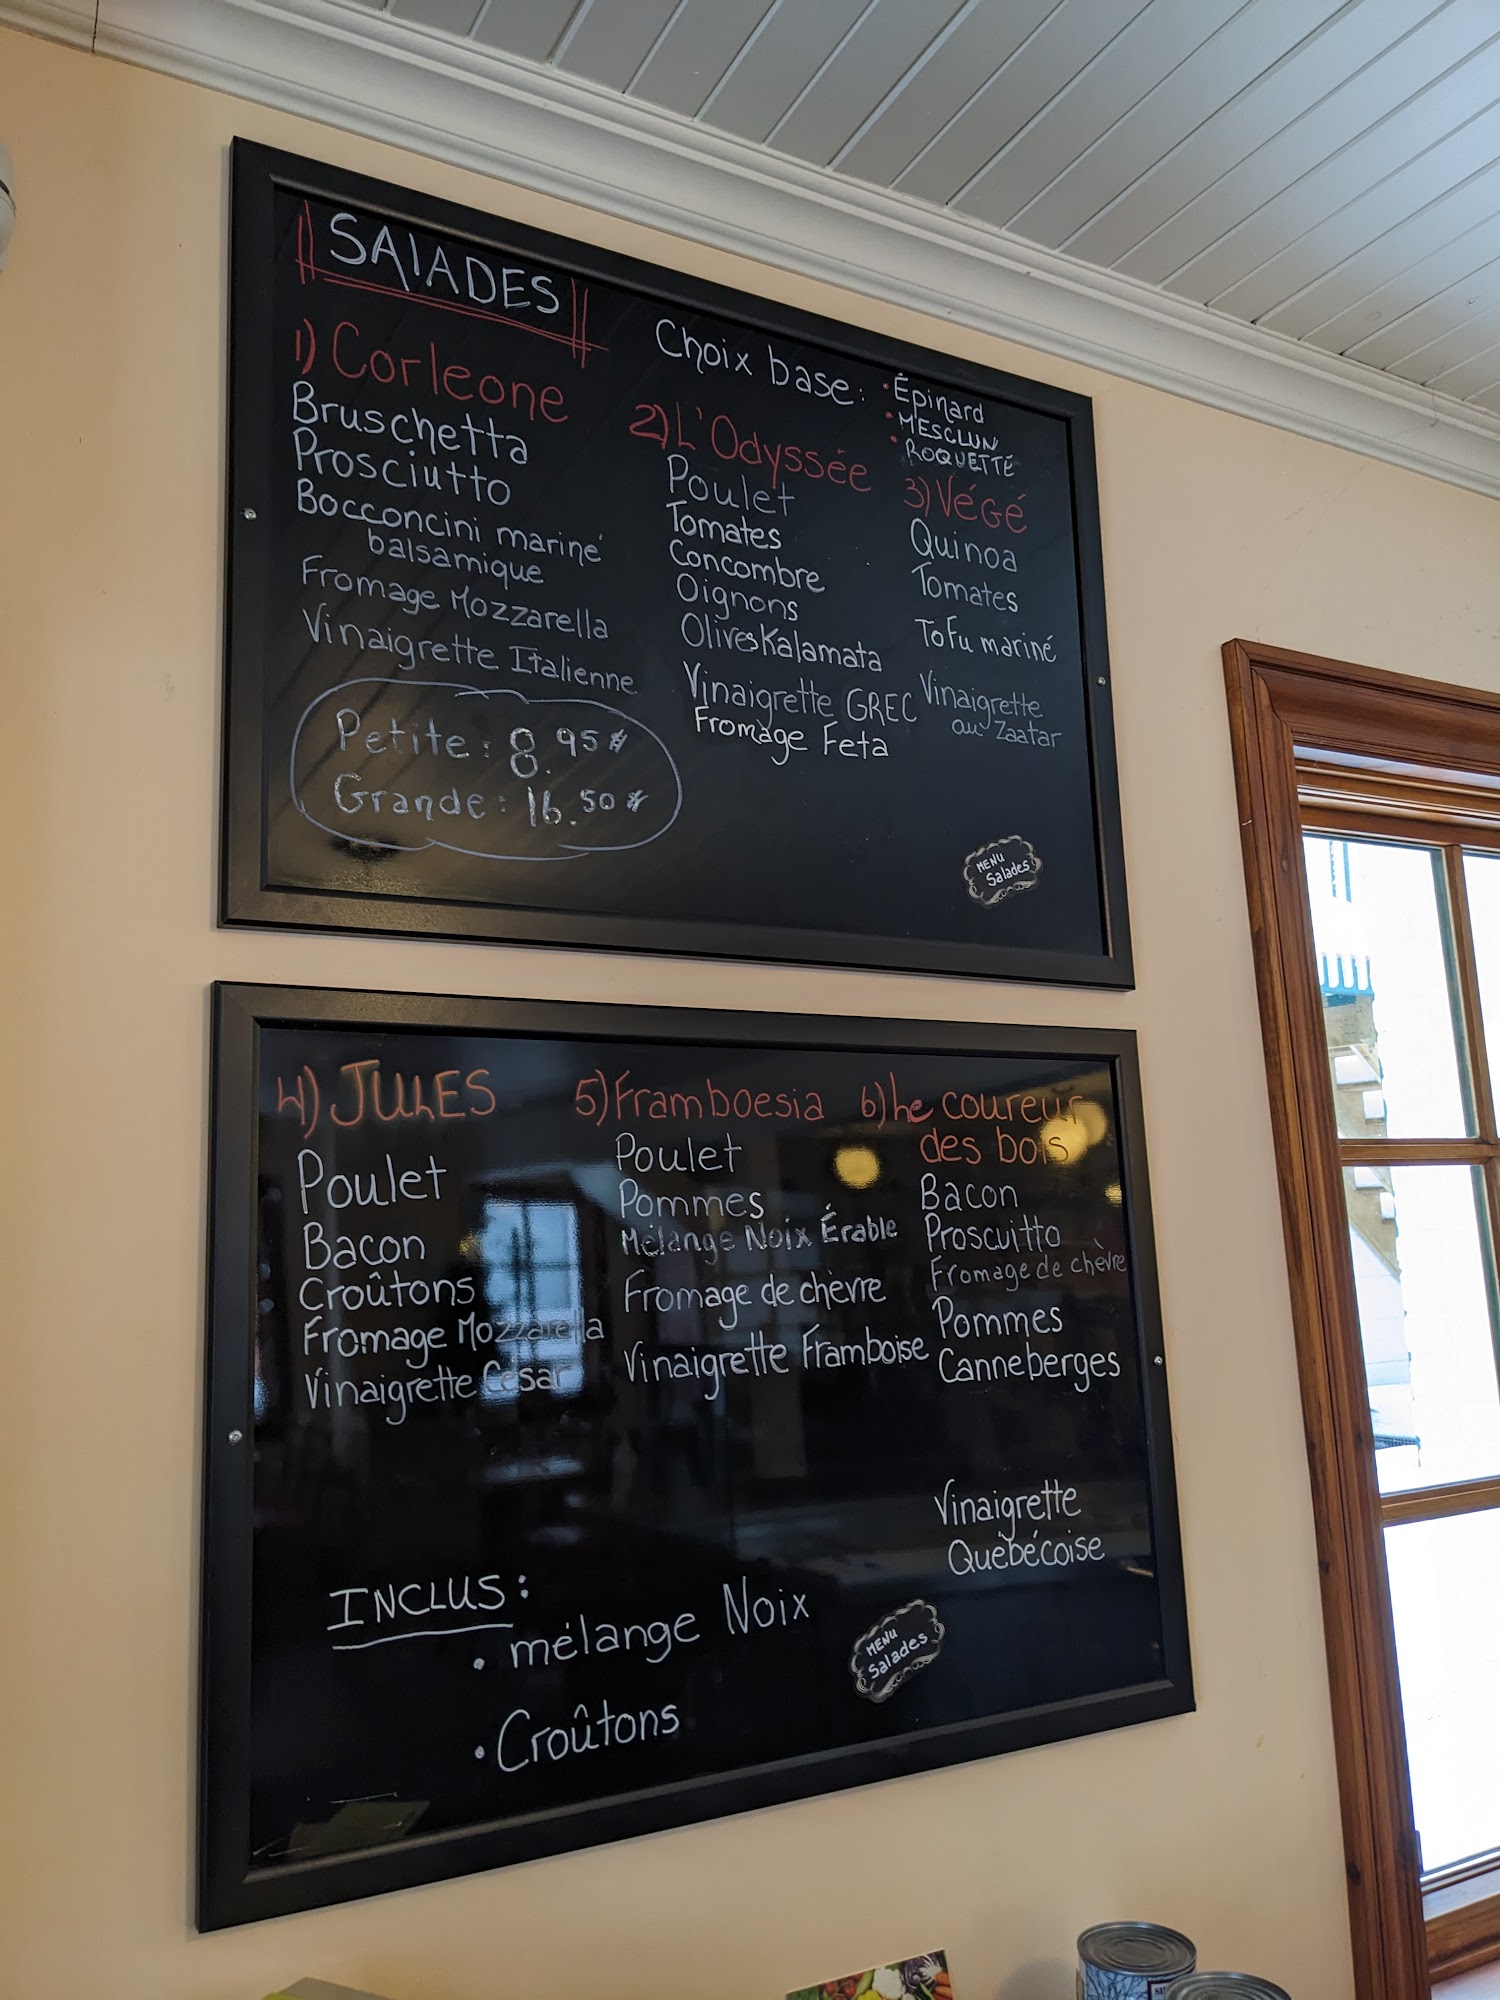 SALADES
Choix base:
• Épinard
• MESCLUN
• ROQUETTE
1) Corleone
Bruschetta
Prosciutto
Bocconcini mariné
balsamique
Fromage Mozzarella
Vinaigrette Italienne
Petite: 8.95$
Grande: 16.50$
2) L'Odyssée
Poulet
Tomates
Concombre
Oignons
Olives Kalamata
Vinaigrette GREC
Fromage Feta
3) VéGé
Quinoa
Tomates
Tofu mariné
Vinaigrette
au Zaatar
MENU
Salades
4) JULES
Poulet
Bacon
Croûtons
Fromage Mozzarella
Vinaigrette César
5) Framboesia
Poulet
Pommes
Mélange Noix Érable
Fromage de chèvre
Vinaigrette Framboise
6) Le coureur
des bois
Bacon
Proscuitto
Fromage de chèvre
Pommes
Canneberges
Vinaigrette
Québécoise
INCLUS:
• mélange Noix
• Croûtons
MENU
Salades